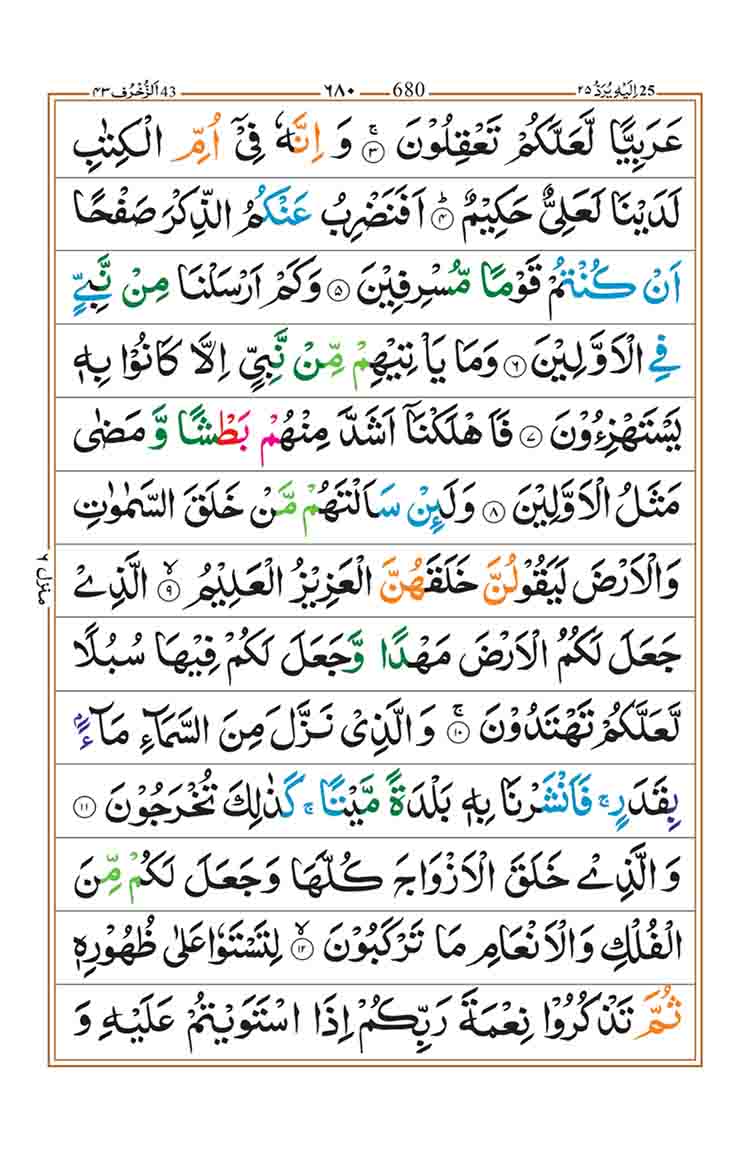 اَلزُّخْرُف ۴۳ 43 ۶۸۰ 680 اِلَيْهِ يُرَدُّ ۲۵ 25
عَرَبِيًّا لَّعَلَّكُمْ تَعْقِلُوْنَ ۚ‏ ۳ وَ اِنَّهٗ فِىْۤ اُمِّ الْكِتٰبِ
لَدَيْنَا لَعَلِىٌّ حَكِيْمٌؕ‏ ۴ اَفَنَضْرِبُ عَنْكُمُ الذِّكْرَ صَفْحًا
اَنْ كُنْتُمْ قَوْمًا مُّسْرِفِيْنَ‏ ۵ وَكَمْ اَرْسَلْنَا مِنْ نَّبِىٍّ
فِى الْاَوَّلِيْنَ‏ ۶ وَمَا يَاْتِيْهِمْ مِّنْ نَّبِىٍّ اِلَّا كَانُوْا بِهٖ
يَسْتَهْزِءُوْنَ‏ ۷ فَاَهْلَكْنَاۤ اَشَدَّ مِنْهُمْ بَطْشًا وَّ مَضٰى
مَثَلُ الْاَوَّلِيْنَ‏ ۸ وَلَئِنْ سَاَلْتَهُمْ مَّنْ خَلَقَ السَّمٰوٰتِ
وَالْاَرْضَ لَيَقُوْلُنَّ خَلَقَهُنَّ الْعَزِيْزُ الْعَلِيْمُۙ‏ ۹ الَّذِىْ
جَعَلَ لَكُمُ الْاَرْضَ مَهْدًا وَّجَعَلَ لَكُمْ فِيْهَا سُبُلًا
لَّعَلَّكُمْ تَهْتَدُوْنَۚ‏ ۱۰ وَالَّذِىْ نَزَّلَ مِنَ السَّمَآءِ مَآءًۢ
بِقَدَرٍۚ فَاَنْشَرْنَا بِهٖ بَلْدَةً مَّيْتًاۚ كَذٰلِكَ تُخْرَجُوْنَ‏ ۱۱
وَالَّذِىْ خَلَقَ الْاَزْوَاجَ كُلَّهَا وَجَعَلَ لَكُمْ مِّنَ
الْفُلْكِ وَالْاَنْعَامِ مَا تَرْكَبُوْنَۙ‏ ۱۲ لِتَسْتَوٗا عَلٰى ظُهُوْرِهٖ
ثُمَّ تَذْكُرُوْا نِعْمَةَ رَبِّكُمْ اِذَا اسْتَوَيْتُمْ عَلَيْهِ وَ
منزل ۶